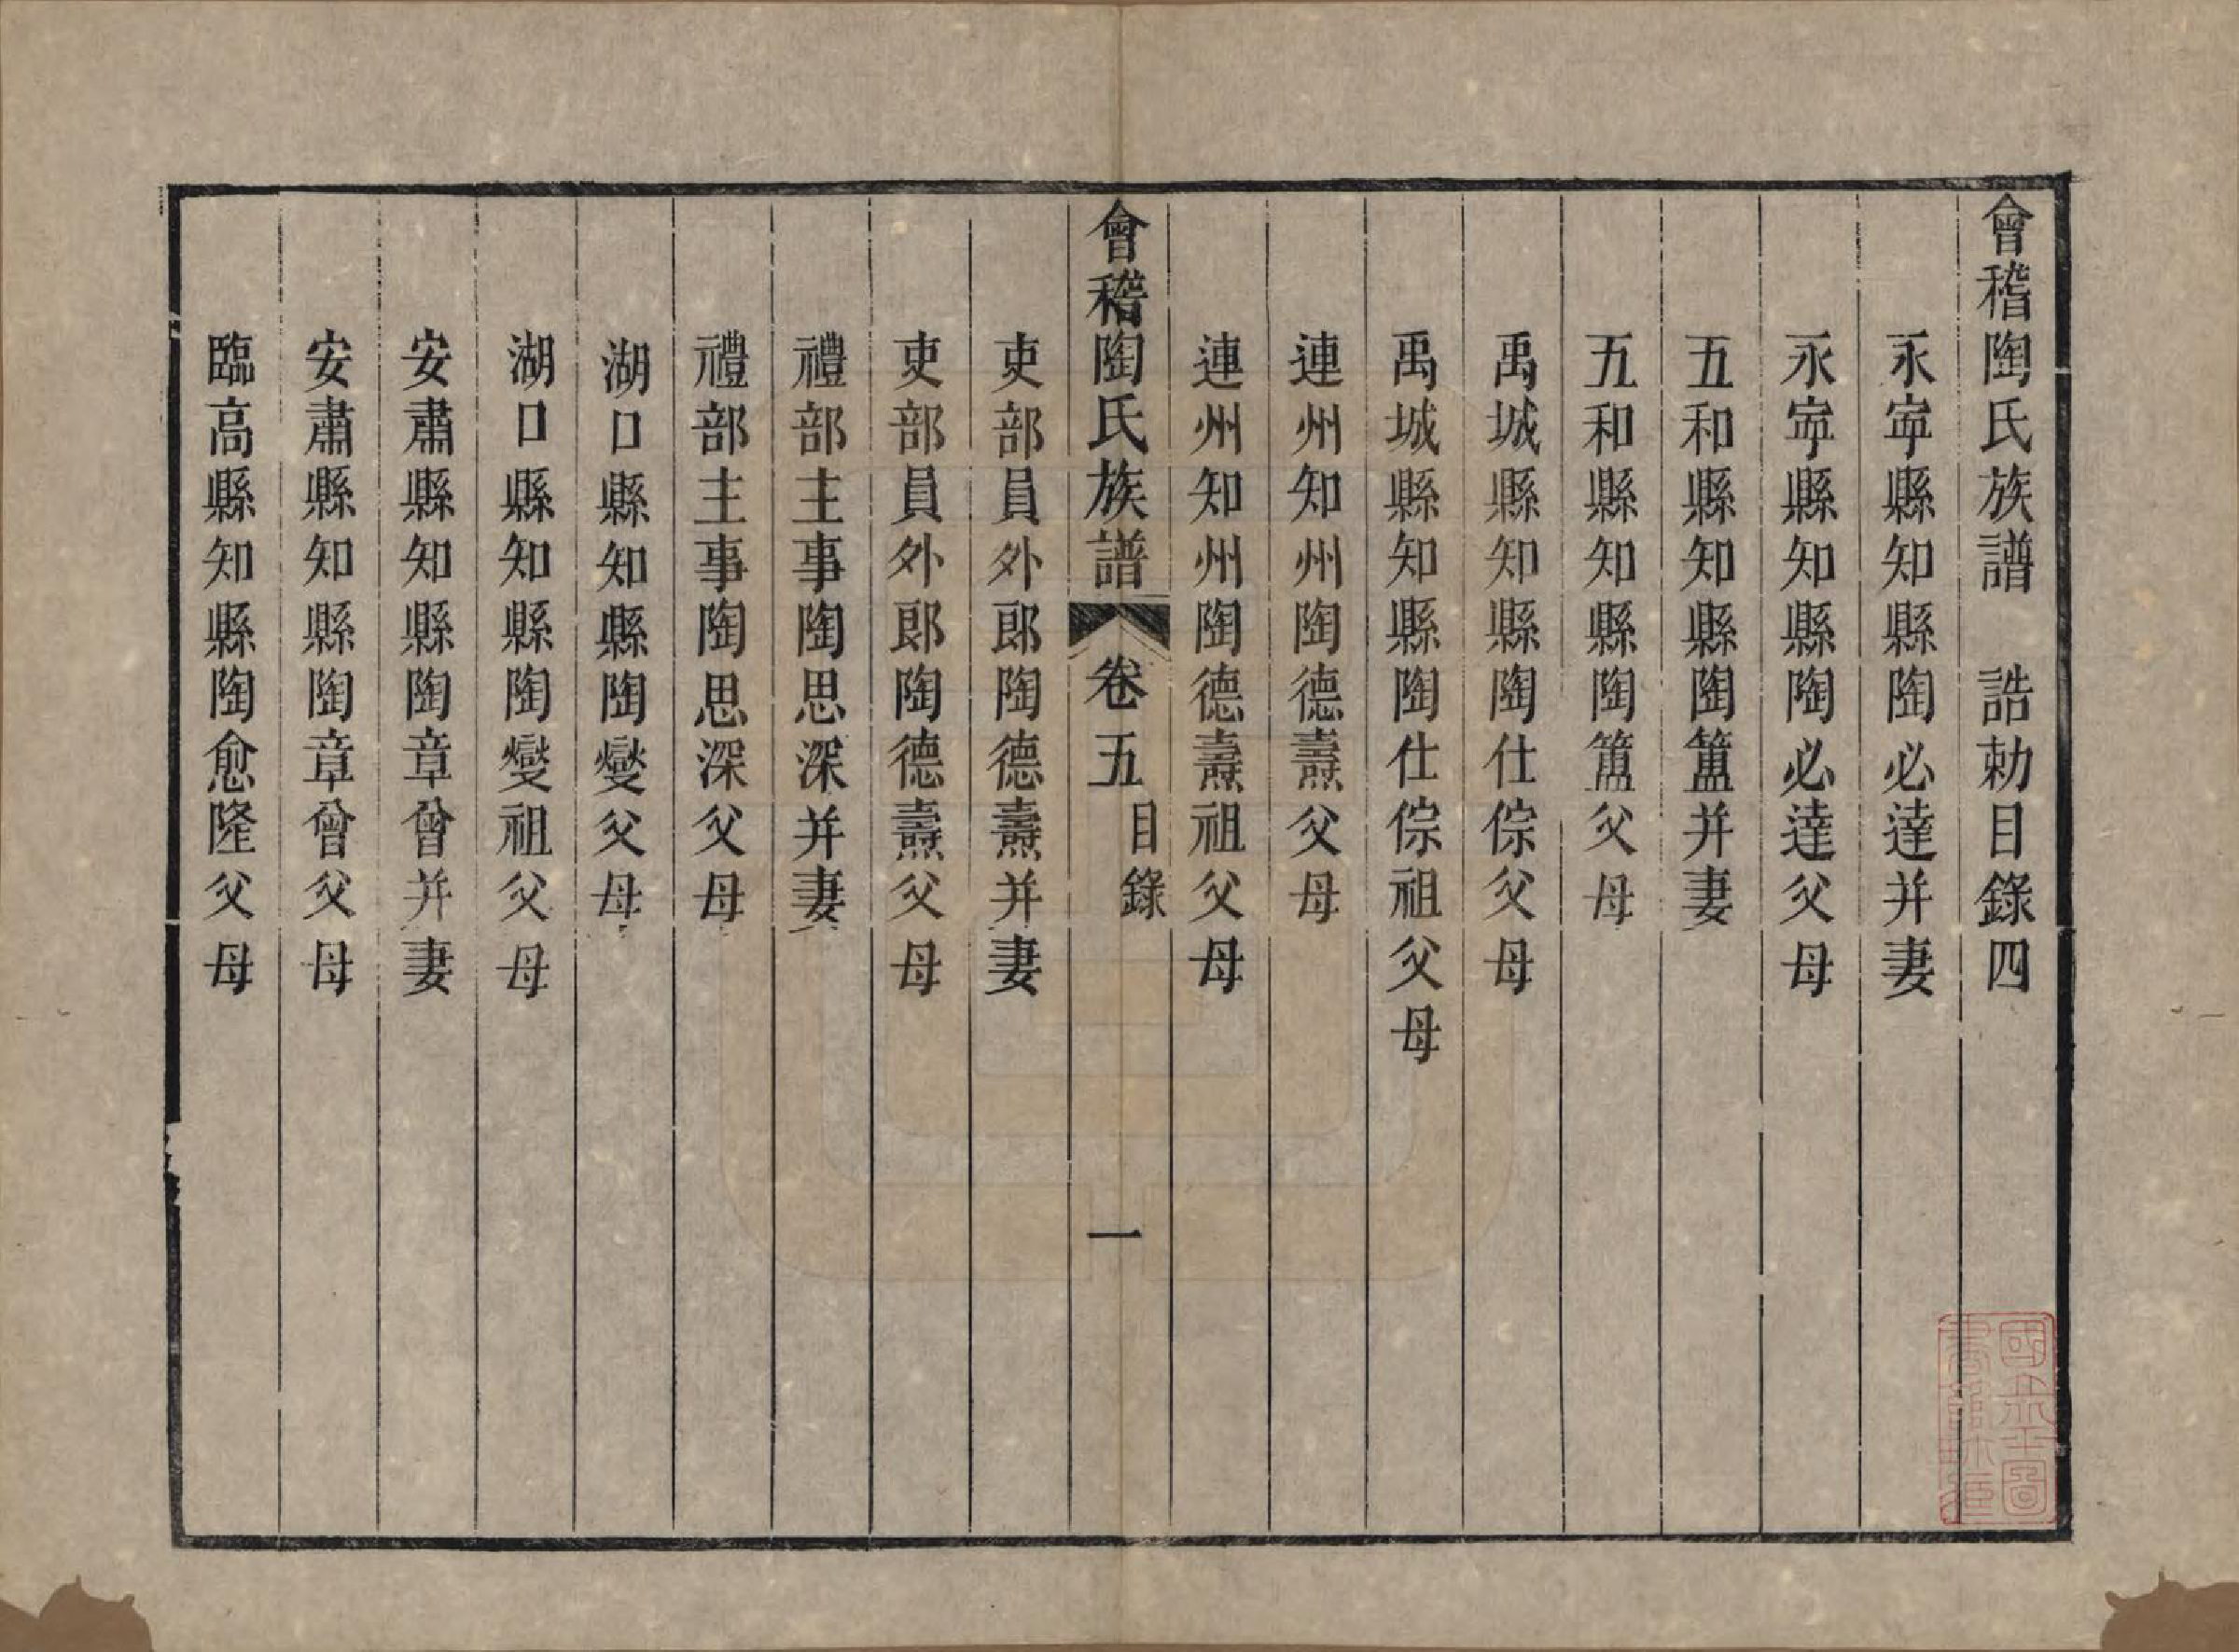 會稽陶氏族譜　誥勅目錄四
永寧縣知縣陶必達并妻
永寧縣知縣陶必達父母
五和縣知縣陶簠并妻
五和縣知縣陶簠父母
禹城縣知縣陶仕倧父母
禹城縣知縣陶仕倧祖父母
連州知州陶德燾父母
連州知州陶德燾祖父母
會稽陶氏族譜　卷五　目錄　一
吏部員外郎陶德燾并妻
吏部員外郎陶德燾父母
禮部主事陶思深并妻
禮部主事陶思深父母
湖口縣知縣陶燮父母
湖口縣知縣陶燮祖父母
安肅縣知縣陶章曾并妻
安肅縣知縣陶章曾父母
臨高縣知縣陶愈隆父母
國立北平圖
書館收藏